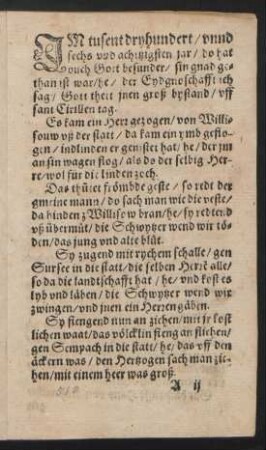 IM tusent dryhundert/ vnnd
sechs vnd achtzigsten jar/ do hat
ouch Gott besunder/ sin gnad ge-
than ist war/he/ der Eydgnoschafft ich
sag/ Gott theit jnen groß bystand/ vff
sant Cirillen tag.
Es kam ein Herr gezogen/ von Willi-
souw vß der statt/ da kam ein ymb geflo-
gen/ indlinden er genistet hat/ he/ der jm
an sin wagen flog/ als do der selbig Her-
re/ wol für die linden zoch.
Das thůtet frömbde geste/ so redt der
gmeine mann/ do sach man wie die veste/
da hinden z Willisow bran/he/ sy redtend
vß übermůt/ die Schwytzer wend wir tö-
den/ das jung vnd alte blůt.
Sy zugend mit rychem schalle/ gen
Sursee in die statt/ die selben Herrē alle/
so da die landtschafft hat/ he/ vnd kost es
lyb vnd låben/ die Schwytzer wend wir
zwingen/ vnd jnen ein Herren gäben.
Sy fiengend nun an ziehen/ mit jr kost
lichen waat/ das völcklin fieng an fliehen/
gen Sempach in die statt/ he/ das vff den
äckern was/ den Hertzogen sach man zie-
hen/ mit einem heer was groß.
A ij